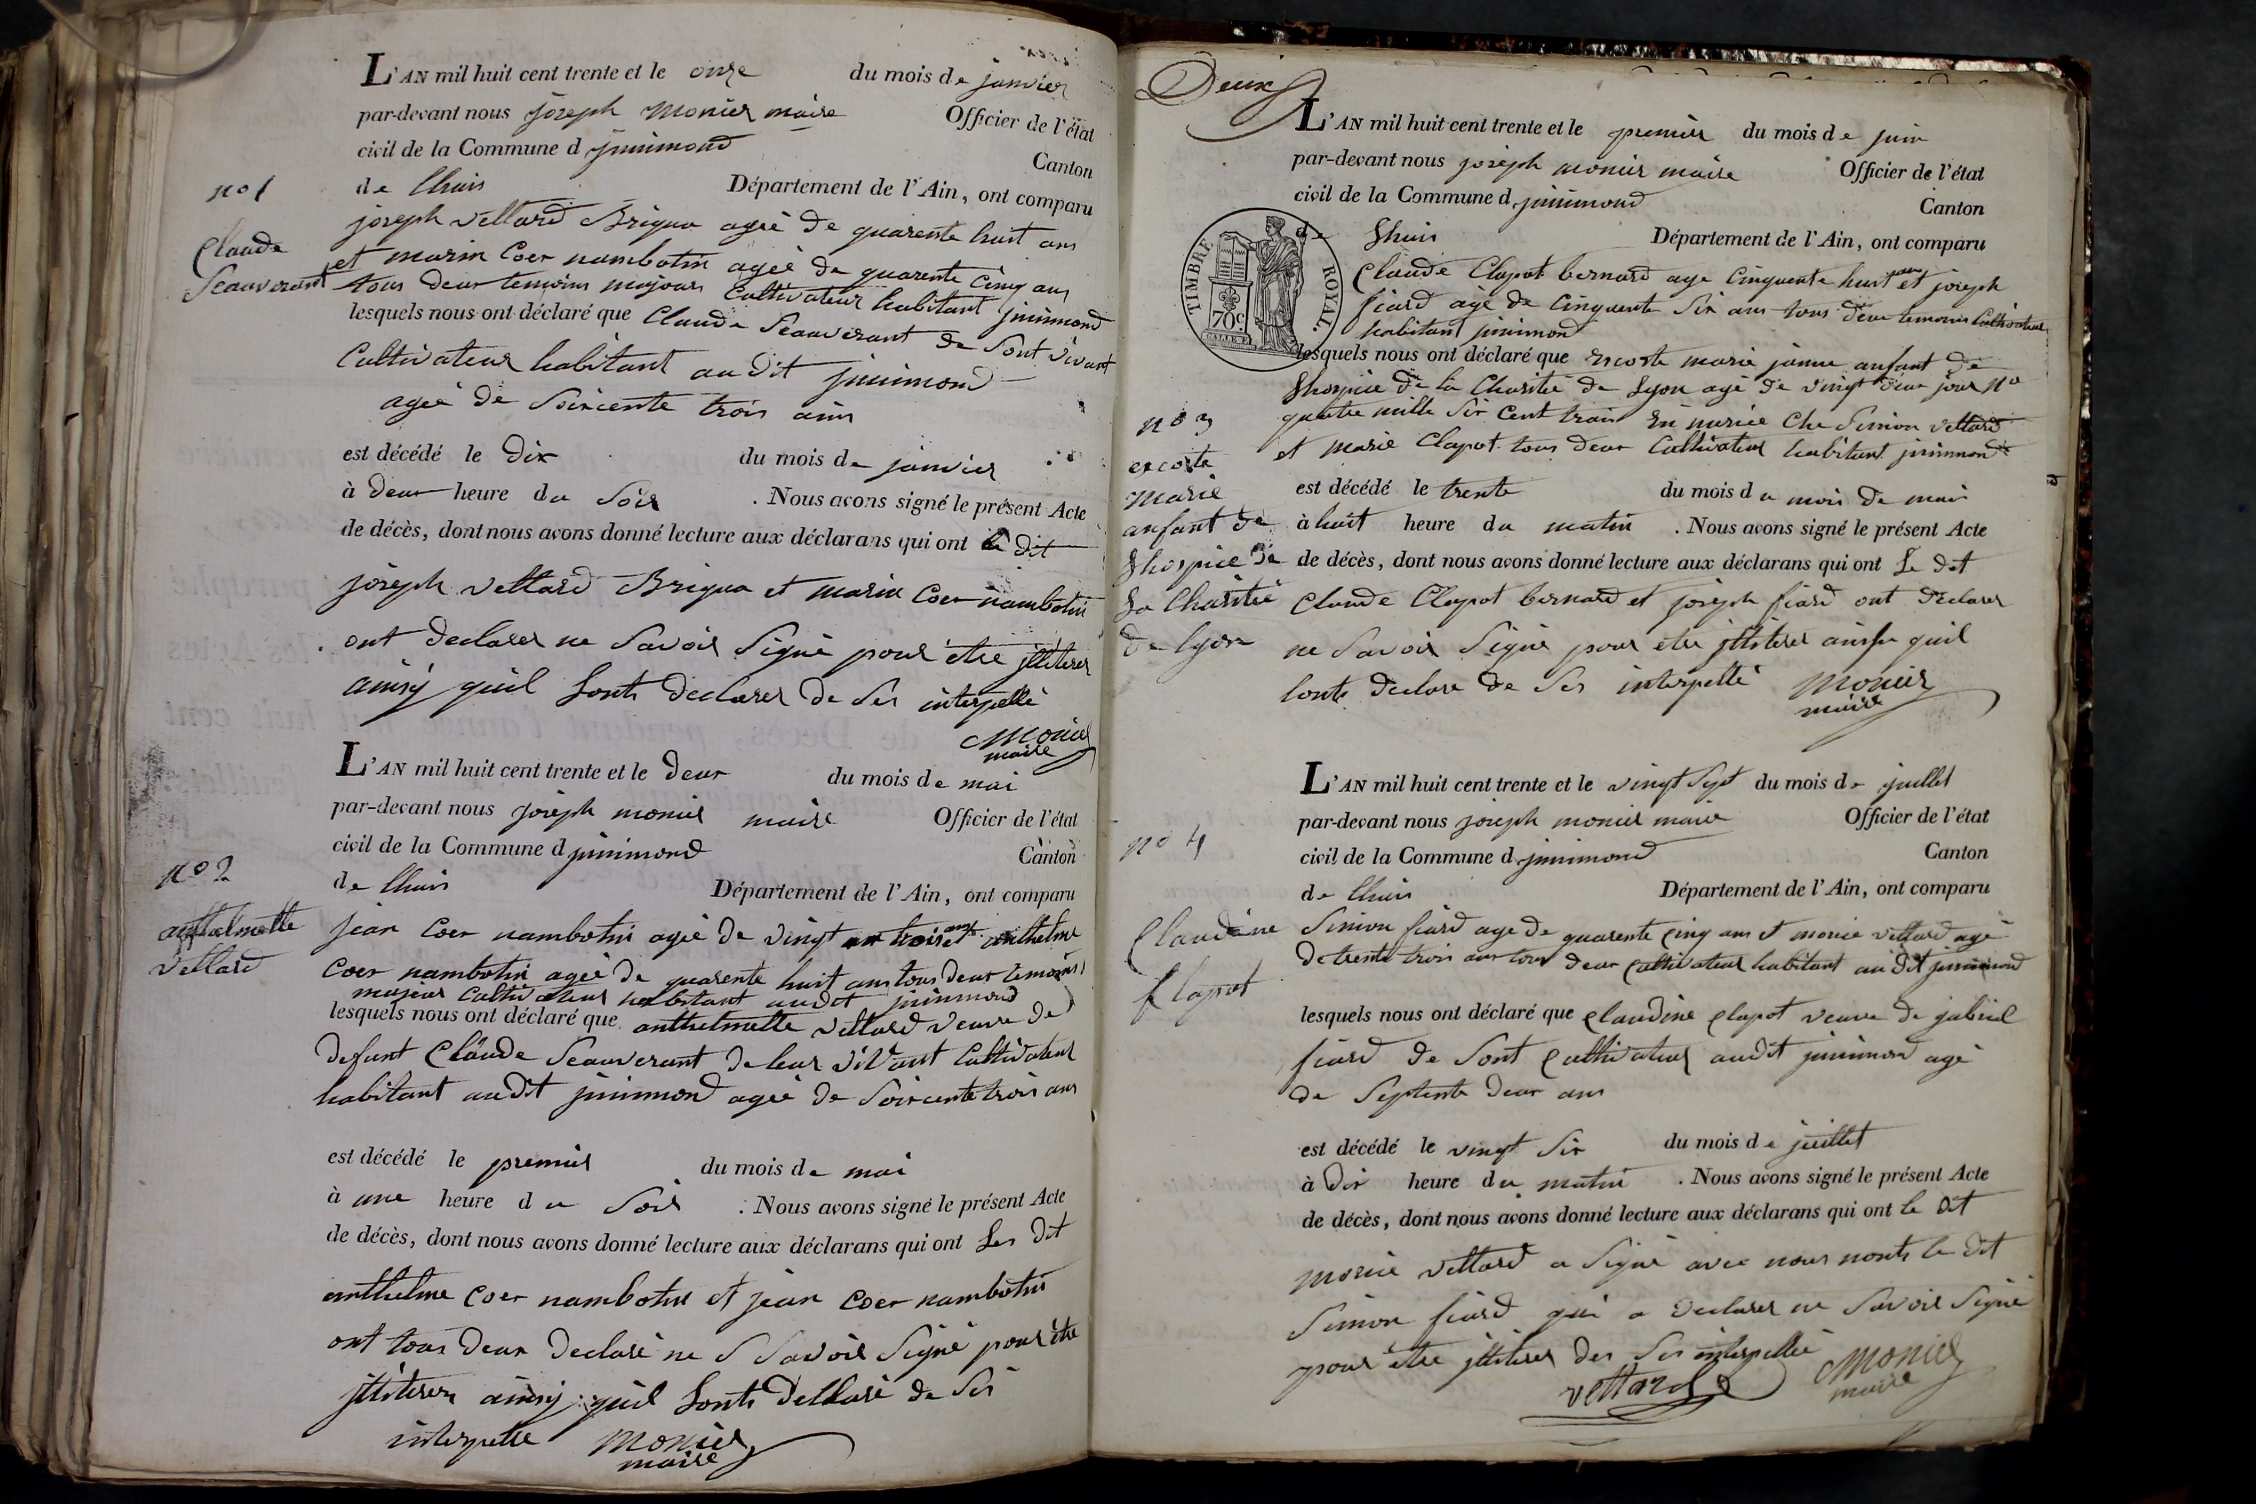 L'AN mil huit cent trente et le onze du mois de janvier
par-devant nous joseph Monier maire Officier de l'état
civil de la Commune d jnnimond Canton
de lhuis Département de l'Ain, ont comparu
no 1
Claude
Seauverant
joseph vettard Briqua agée de quarente huit ans
et marin Coer nambotin agée de quarente Cinq ans
tous deux temoins majours Cultivateur habitant jnnimond
lesquels nous ont déclaré que Claude Seauverant de Sont vivant
Cultivateur habitant au dit jnnimond
agée de Soixcente trois ans
est décédé le Dix du mois de janvier
à deux heure du Soir . Nous avons signé le présent Acte
de décès, dont nous avons donné lecture aux déclarans qui ont le dit
joseph vettard Briqua et marin Coer nambotin
ont declarer ne Savoir Signé pour être jllitérer
ainsy quil Lonts declarer de Ses interpellé
Monier
maire
L'AN mil huit cent trente et le deux du mois de mai
par-devant nous joseph monier maire Officier de l'état
civil de la Commune d jnnimond Canton
de lhuis Département de l'Ain, ont comparu
no 2
anthelmette
vettard
jean Coer nambotin agée de vingt trois ans et anthelme
Coer nambotin agée de quarente huit ans tous deux temoins
majeur Cultivateur habitant audit jnnimond
lesquels nous ont déclaré que anthelmette vettard veuve de
defunt Claude Seauverant de leur vivant Cultivateur
habitant audit jnnimond agée de Soixcente trois ans
est décédé le premier du mois de mai
à une heure du Soir . Nous avons signé le présent Acte
de décès, dont nous avons donné lecture aux déclarans qui ont Les dit
anthelme Coer nambotin et jean Coer nambotin
ont tous deux declaré ne S Savoir Signé pour être
jllitérer ainsy quil Lonts dellaré de Ses
interpelle Monier
maire
Deux
L'AN mil huit cent trente et le premier du mois de juin
par-devant nous joseph monier maire Officier de l'état
civil de la Commune d jnnimond Canton
de Lhuis Département de l'Ain, ont comparu
TIMBRE ROYAL.
70c
Claude Clapot bernard age Cinquente huit ans et joseph
fiard agé de Cinquente Six ans tous deux temoins Cultivateur
habitant jnnimond
lesquels nous ont déclaré que Excoste marie janne anfant de
Lhospice de la Charitié de Lyon agé de vingt deux jour No
quatre mille Six Cent trois En nurice Che Simon vettard
et marie Clapot tous deux Cultivateur habitant jnnimond
no 3
excoste
marie
anfant de
Lhospice de
La Charitié
de lyon
est décédé le trente du mois d u mois de mai
à huit heure du matin . Nous avons signé le présent Acte
de décès, dont nous avons donné lecture aux déclarans qui ont Le dit
Claude Clapot bernard et joseph fiard ont declarer
ne Savoir Signé pour etre jllitérer ainsy quil
Lonts declare de Ses interpellé Monier
maire
L'AN mil huit cent trente et le vingt Sept du mois de juillet
par-devant nous joseph monier maire Officier de l'état
civil de la Commune d jnnimond Canton
de lhuis Département de l'Ain, ont comparu
no 4
Claudine
Clapot
Simon fiard age de quarente Cinq ans et morice vettard agé
de trente trois ans tous deux Cultivateur habitant au dit jnnimond
lesquels nous ont déclaré que Claudine Clapot veuve de gabriel
fiard de Sont Cultivateur audit jnnimond agé
de Septente deux ans
est décédé le vingt Six du mois de juillet
à Dix heure du matin . Nous avons signé le présent Acte
de décès, dont nous avons donné lecture aux déclarans qui ont le dit
morice vettard a Signé avec nous nonts le dit
Simon fiard qui a declarer ne Savoir Signé
pour être jllitérer des Ses interpellée
vettard Monier
maire